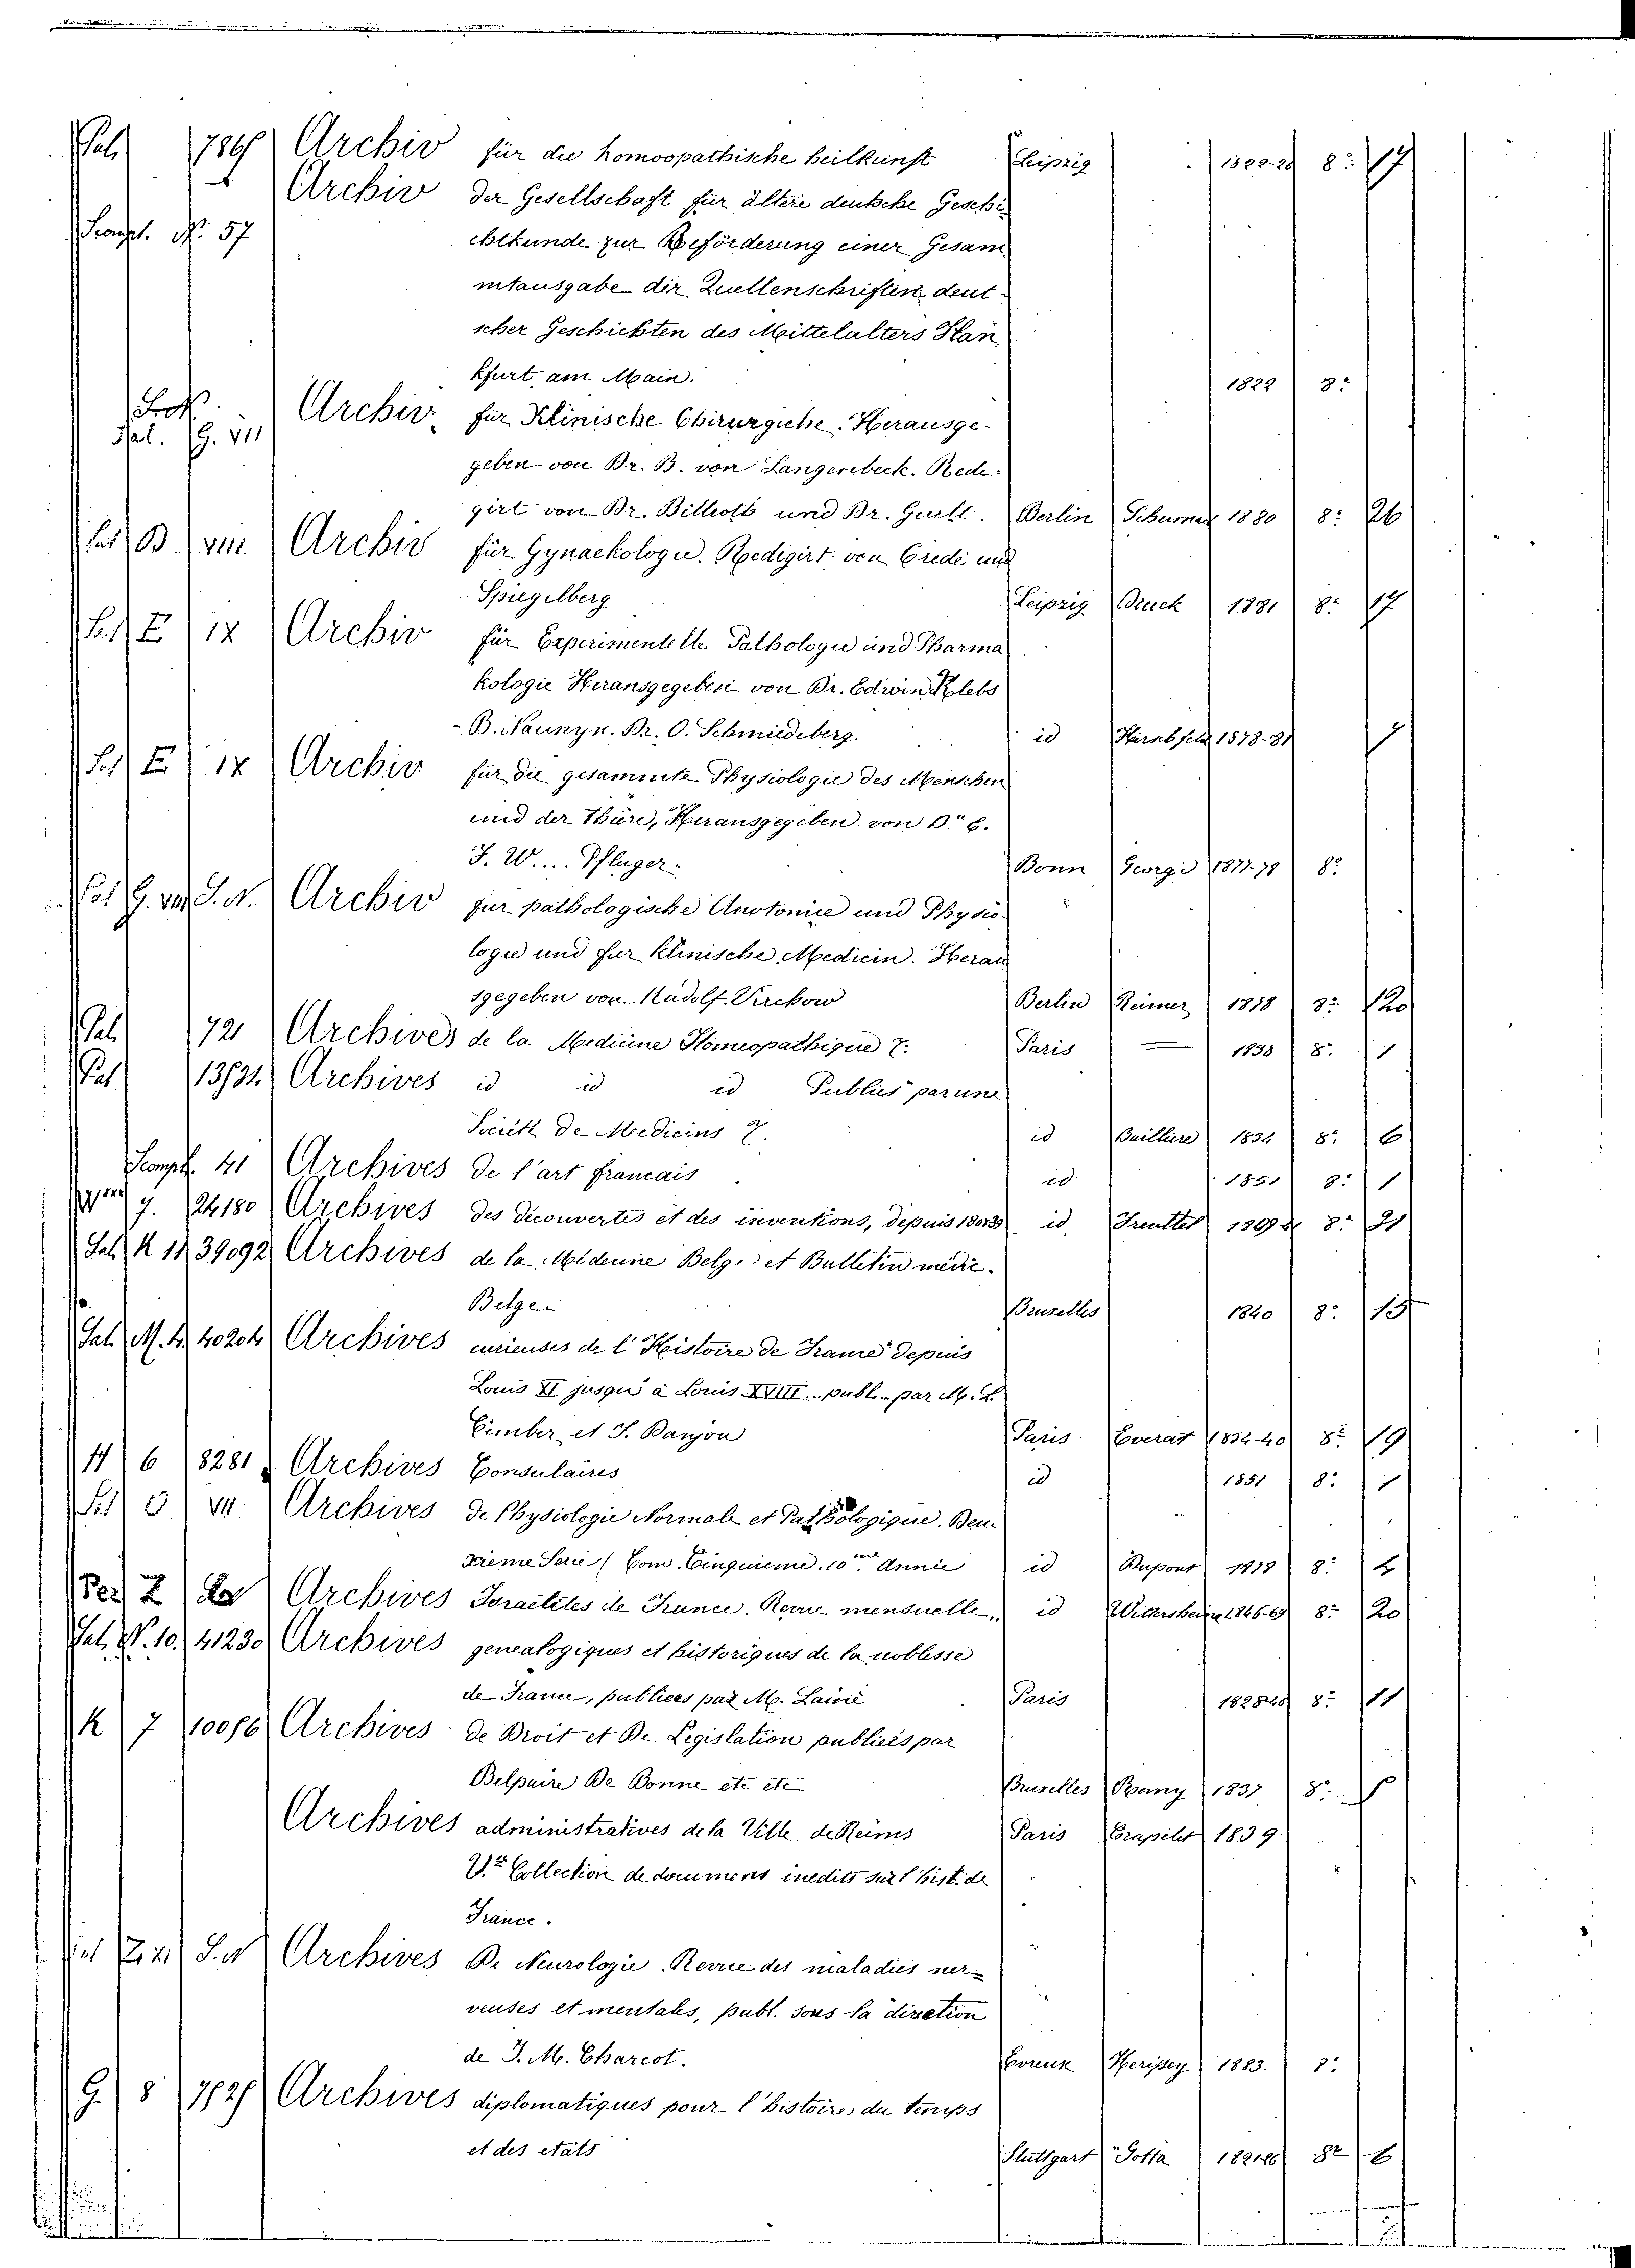 786 Archiv für die homoopathische heilkunst Leipzig 1822-28 8º 17
Archiv der Gesellschaft für ältere deutsche Geschi
Nº 57 chtkunde zur Beförderung einer Gesam
mtausgabe der Quellenschriften deut
scher Geschichten des Mittelalters
kfurt am Main. 1822 8º
G. VII Archiv für Klinische Chirurgiche. Herausge-
geben von Dr. B. von Langenbeck. Redi-
girt von Dr. Billroth und Dr. Gurlt. Berlin 1880 8º 26
B VIII Archiv für Gynaekologie. Redigirt von Credé und
Spiegelberg Leipzig Druck 1881 8º 17
E IX Archiv für Experimentelle Pathologie und Pharma
kologie Herausgegeben von Dr. Edwin Klebs
- B. Naunyn. Dr. O. Schmiedeberg. id 1878-81
E IX Archiv für die gesammte Physiologie des Menschen
und der Thüre, Herausgegeben von Dr E.
F. W.... Pfluger. Bonn Georgi 1877-78 8º
G. VII S.N. Archiv fur pathologische Anatomie und Physio-
logie und fur klinische Medicin. Herau
sgegeben von Rudolf Virchow Berlin Reimer 1878 8º
Sal. 721 Archives de la Medicine Homeopathique Paris — 1838 8º 1
Archives id id id Publiés par une
Societé de Medicins id Bailliere 1834 8º 6
41 Archives de l'art francais id 1851 8º 1
7. 24180 Archives des decouvertes et des inventions, depuis 1808 id Treuttel 1809 8º 21
Sal. K 11 39092 Archives de la Médecine Belge et Bulletin medic.
Belge Bruxelles 1840 8º 15
Sal. M. 4 40204 Archives curieuses de l'Histoire de France depuis
Louis XI jusqu'a Louis XVIII publ. par M. L.
Cimber et F. Danjou Paris Everat 1834-40 8º 19
H 6 8281 Archives Consulaires id 1851 8º 1
VII Archives de Physiologie Normale et Pathologique. Deu-
xieme Serie (Tom. Cinquieme. 10me Année id Dupont 1878 8º
Per. Z Archives Israelites de France. Revue mensuelle. id Wittersheim 1846-69 8º 20
Sal. N. 10. 41230 Archives genealogiques et historiques de la noblesse
de France, publiees par M. Lainé Paris 8º 11
K 7 Archives de Droit et De Legislation publiés par
Belpaire De Bonne etc etc Bruxelles Remy 1837 8º
Archives administratives de la Ville de Reims Paris Crapelet 1839
Vº Collection de documens inedits sur l'hist. de
France.
S.N Archives De Neurologie. Revue des maladies ner-
veuses et mentales, publ. sous la diréction
de J. M. Charcot. Evreux Herissey 1883. 8º
G. 8 Archives diplomatiques pour l'histoire du temps
et des etats Stuttgart Cotta 8º 6